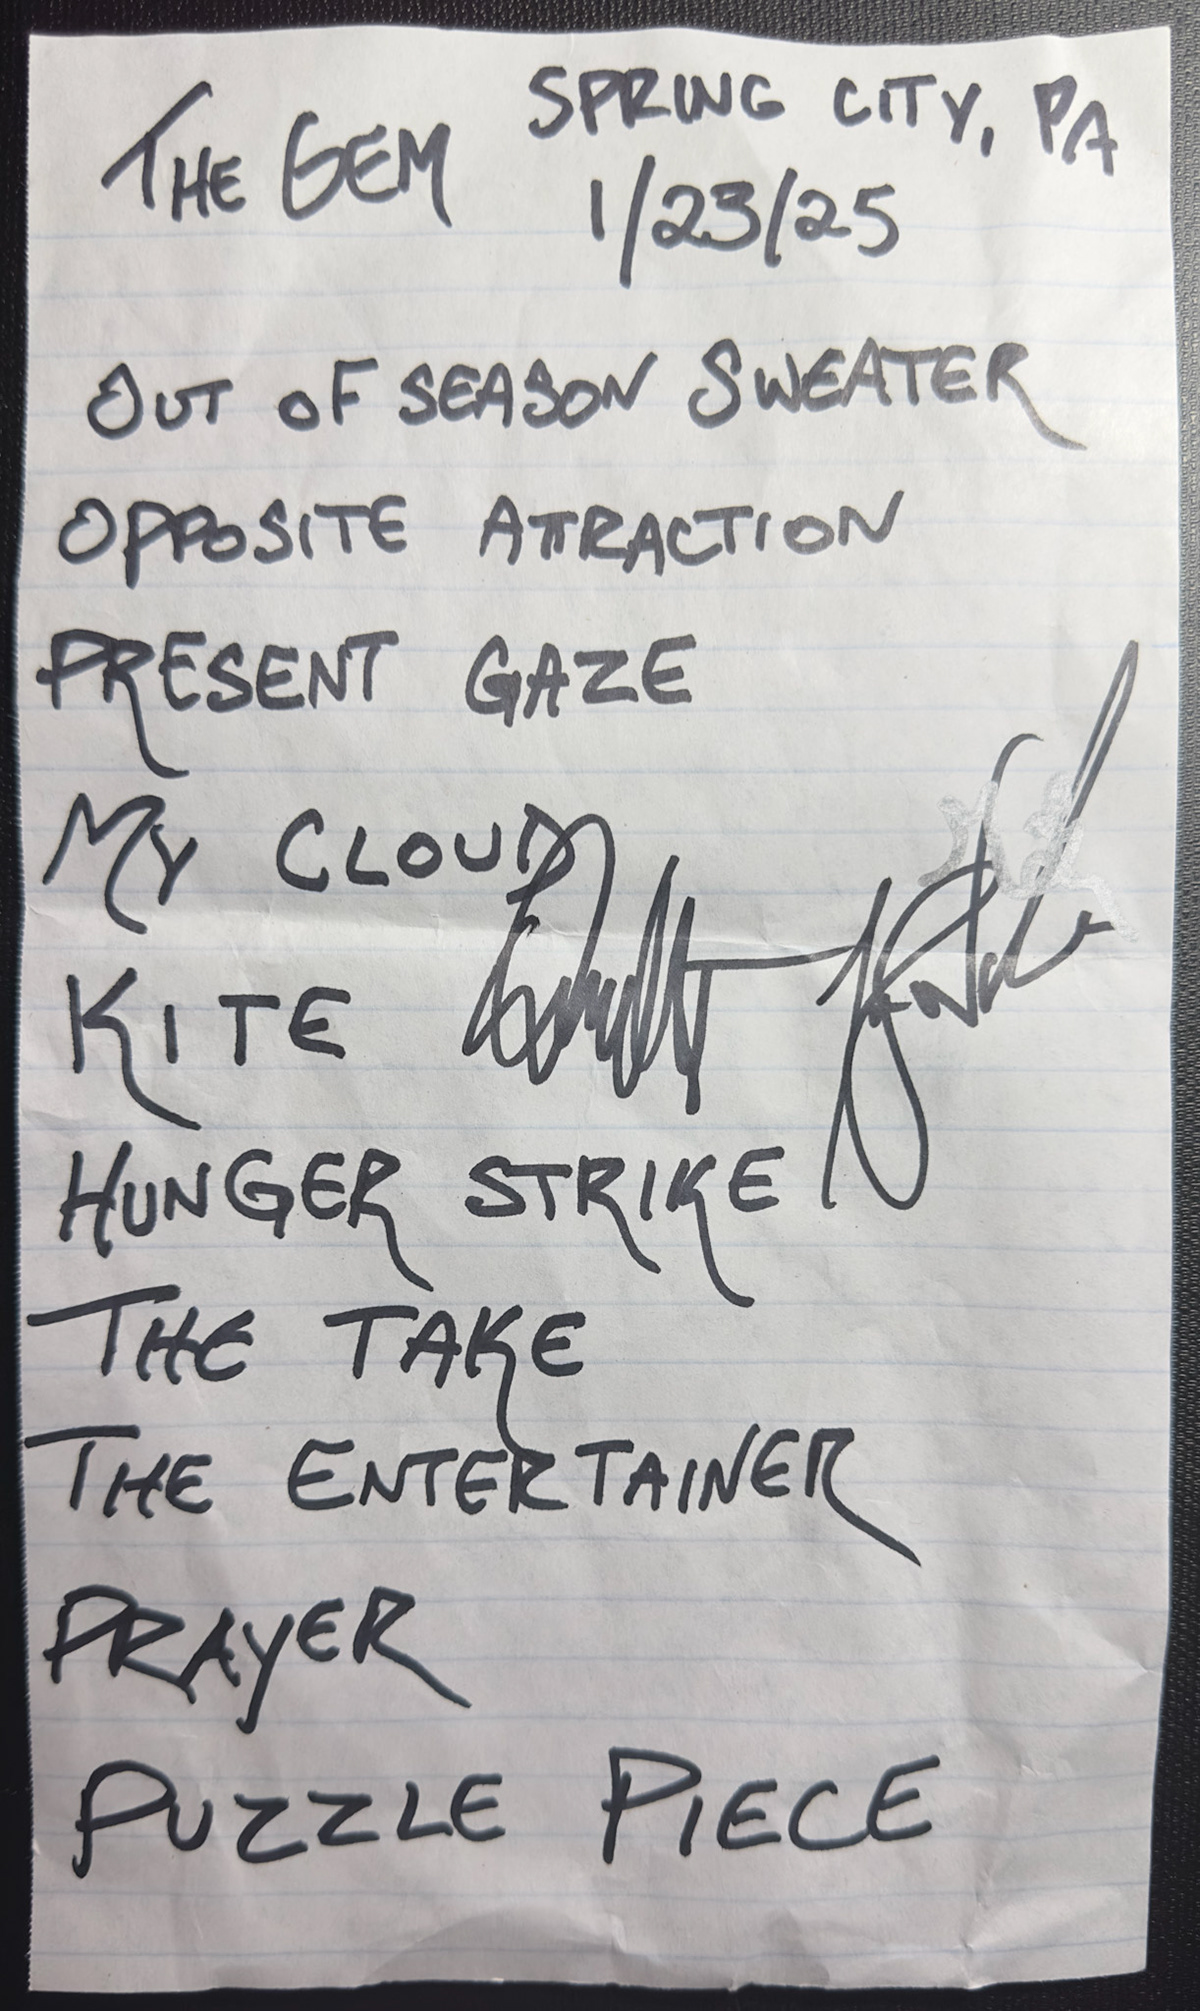 THE GEM SPRING CITY, PA
1/23/25
OUT OF SEASON SWEATER
OPPOSITE ATTRACTION
PRESENT GAZE
MY CLOUD
KITE
HUNGER STRIKE
THE TAKE
THE ENTERTAINER
PRAYER
PUZZLE PIECE